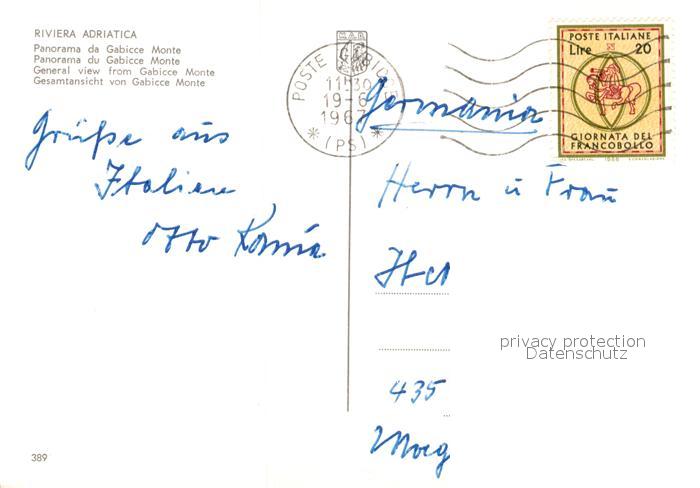 RIVIERA ADRIATICA
Panorama da Gabicce Monte
Panorama du Gabicce Monte
General view from Gabicce Monte
Gesamtansicht von Gabicce Monte
Grüße aus
Italien
Otto
389
POSTE
11-30
19-6
196
(PS)
POSTE ITALIANE
Lire 20
GIORNATA DEL
FRANCOBOLLO
1966
Germania
Herrn u Frau
privacy protection
Datenschutz
435